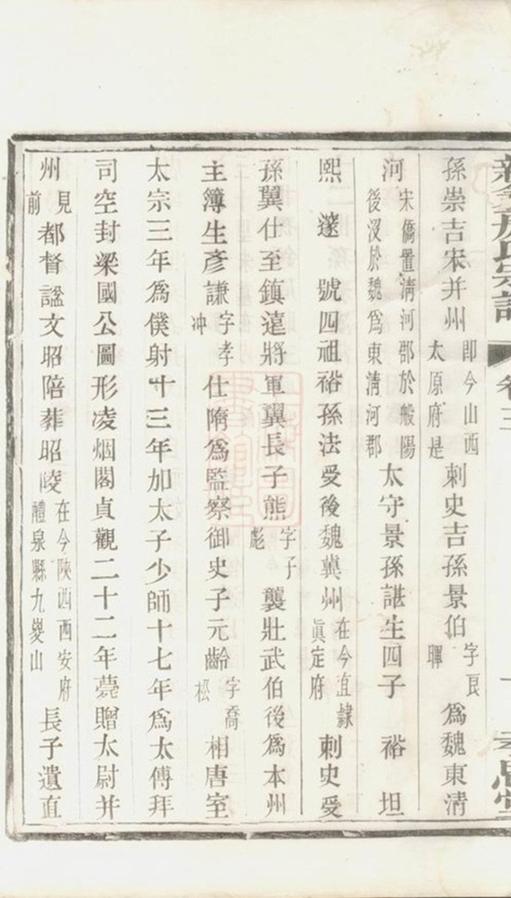 房氏宗譜 卷三
孫崇吉宋并州即今山西太原府是刺史吉孫景伯字良暉為魏東清
河宋僑置清河郡於般陽後沒於魏為東清河郡太守景孫諶生四子 裕 坦
熙 邃 號四祖裕孫法受後魏冀州在今直隸真定府刺史受
孫翼仕至鎮遠將軍翼長子熊字子彪襲壯武伯後為本州
主簿生彥謙字孝冲仕隋為監察御史子元齡字喬松相唐室
太宗三年為僕射十三年加太子少師十七年為太傅拜
司空封梁國公圖形凌烟閣貞觀二十二年薨贈太尉并
州見前都督謚文昭陪葬昭陵在今陝西西安府禮泉縣九嵕山長子遺直